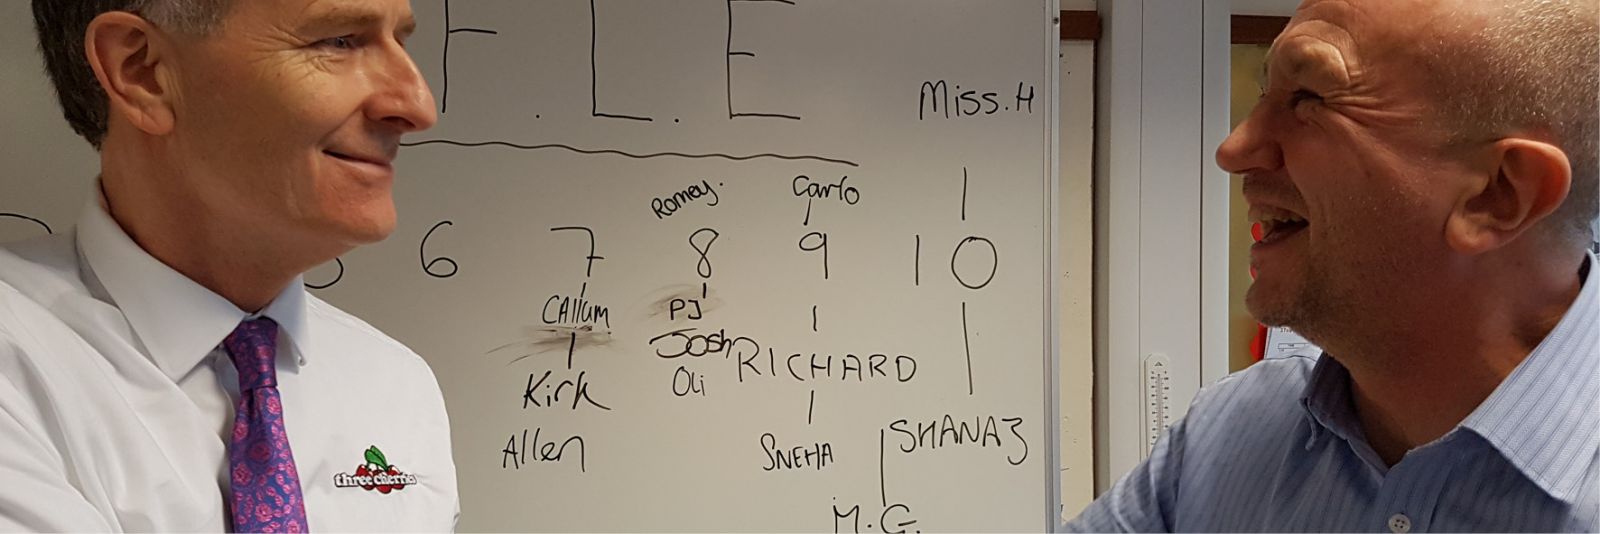 F.L.E
Miss.H
Romey. Carlo
6 7 8 9 10
CAllum PJ
Josh RICHARD
Kirk Oli
Allen SNEHA SHANAZ
three cherries
M.G.